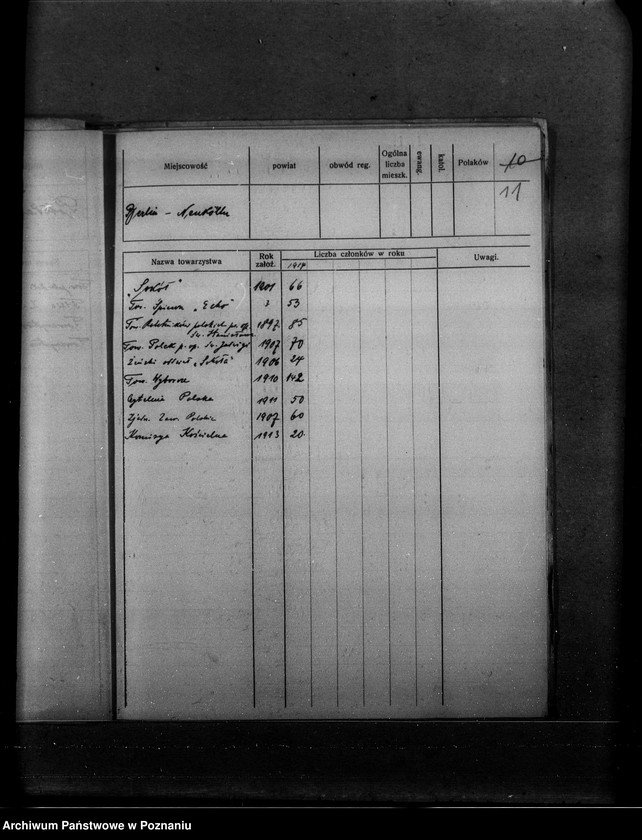 Miejscowość powiat obwód reg. Ogólna liczba mieszk. ewang. katol. Polaków 10
11
Berlin - Neukölln
Nazwa towarzystwa Rok założ. Liczba członków w roku Uwagi.
1914
"Sokół" 1901 66
Tow. Śpiewu "Echo" ? 53
Tow. Robotników polskich p. op. 1897 85
św. Stanisława
Tow. Polek p. op. św. Jadwigi 1907 70
Żeński oddział "Sokoła" 1906 24
Tow. Wyborcze 1910 142
Czytelnia Polska 1911 50
Zjedn. Zaw. Polskie 1907 60
Komisya Kościelna 1913 20
Archiwum Państwowe w Poznaniu